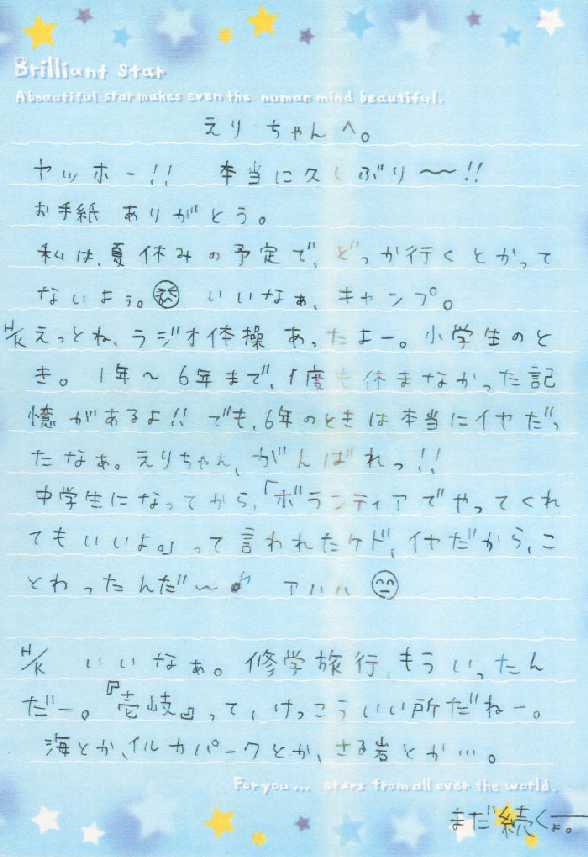 Brilliant Star
A beautiful star makes even the human mind beautiful.
えりちゃんへ。
ヤッホー!! 本当に久しぶり〜!!
お手紙ありがとう。
私は、夏休みの予定で、どっか行くとかって
ないよぅ。いいなぁ、キャンプ。
H/K えっとね、ラジオ体操あったよー。小学生のと
き。1年〜6年まで、1度も休まなかった記
憶があるよ!! でも、6年のときは本当にイヤだっ
たなぁ。えりちゃん、がんばれっ!!
中学生になってから、「ボランティアでやってくれ
てもいいよ。」って言われたケド、イヤだから、こ
とわったんだ〜♪ アハハ
H/K いいなぁ。修学旅行、もういったん
だー。『壱岐』って、けっこういい所だねー。
海とか、イルカパークとか、さる岩とか…。
For you... stars from all over the world.
まだ続くよー。